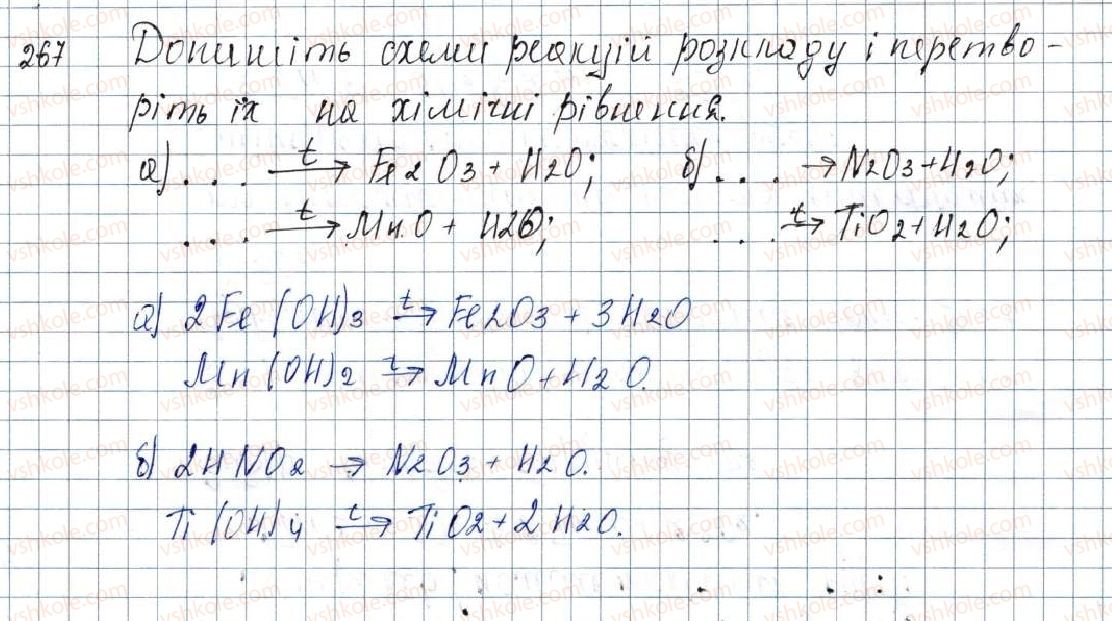 267 Допишіть схеми реакцій розкладу і перетво-
ріть їх на хімічні рівнення.
а) ... t→ Fe2O3 + H2O; б) ... → N2O3 + H2O;
... t→ MnO + H2O; ... t→ TiO2 + H2O;
а) 2Fe(OH)3 t→ Fe2O3 + 3H2O
Mn(OH)2 t→ MnO + H2O.
б) 2HNO2 → N2O3 + H2O.
Ti(OH)4 t→ TiO2 + 2H2O.